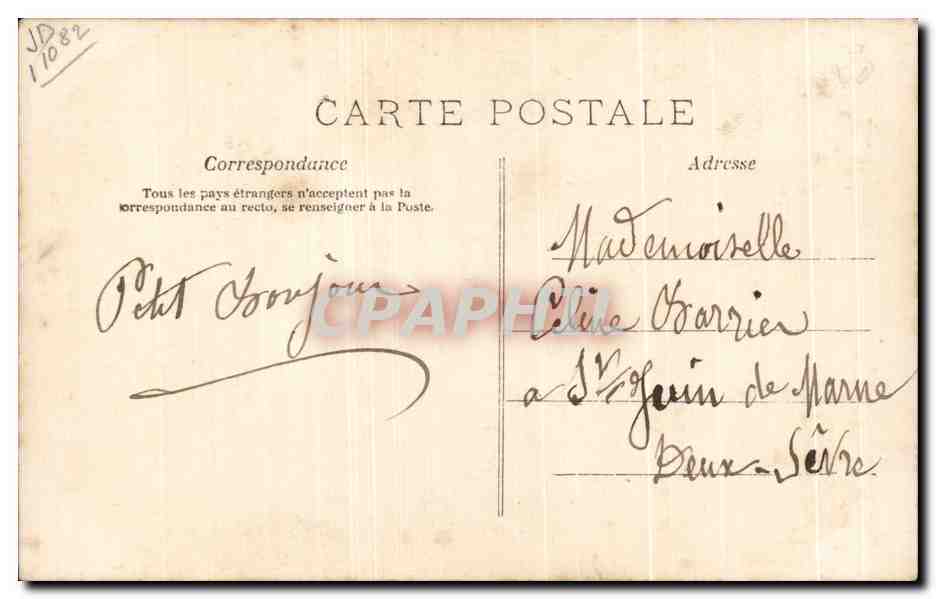 JD
11082
CARTE POSTALE
Correspondance
Tous les pays étrangers n'acceptent pas la
correspondance au recto, se renseigner à la Poste.
Petit Bonjour
Adresse
Mademoiselle
Céline Barrier
a St Juin de Marne
Deux-Sêvre
CPAPHIL